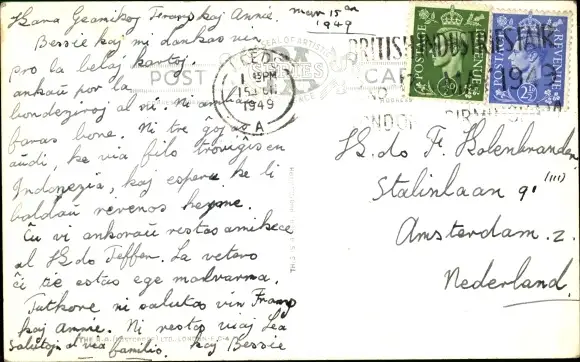 Kara Geamikoj Frans kaj Annie.
Mar 15an
1949
Bessie kaj mi dankas vin
pro la belaj kartoj
ankaŭ por la
bondeziroj al ni. Ni ambaŭ
fartas bone. Ni tre ĝojas
aŭdi ke via filo troviĝis en
Indonezia, kaj esperu ke li
baldaŭ revenos hejme.
Ĉu vi ankoraŭ restas amikece
al S-do Teffer. La vetero
ĉi tie estas ege malvarma.
Tutkore ni salutas vin Frans
kaj Annie. Ni restas viaj Lea
Salutojn al via familio. kaj Bessie
POST CARD
SERIES
LEEDS
PM
1949
A
BRITISH INDUSTRIES FAIR
1949
LONDON BIRMINGHAM
POSTAGE REVENUE
½D
POSTAGE REVENUE
2½D
S-do F. Kolenbrander
Stalinlaan 91 (III)
Amsterdam. Z.
Nederland.
THIS IS A REAL PHOTOGRAPH